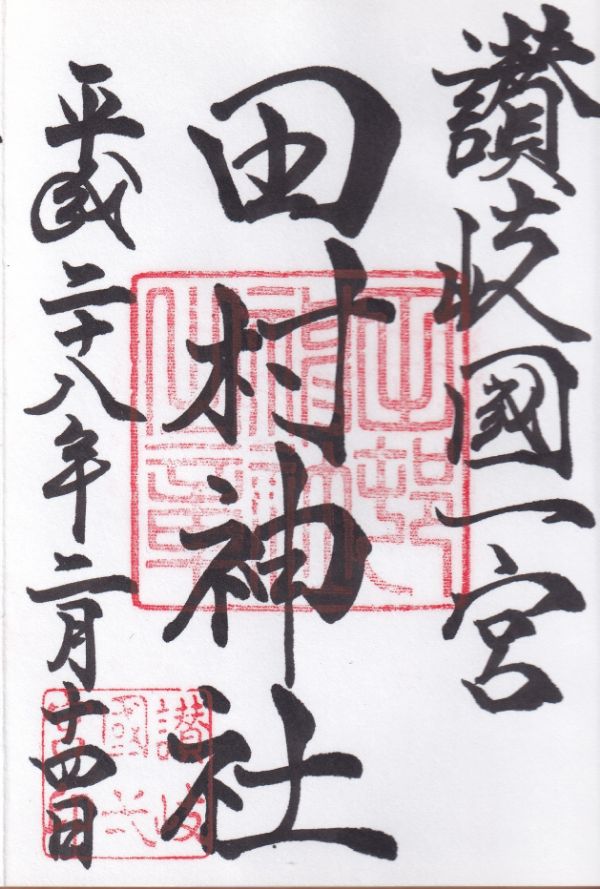 讃岐國一宮
田村神社
平成二十八年二月十四日
讃岐
國弌